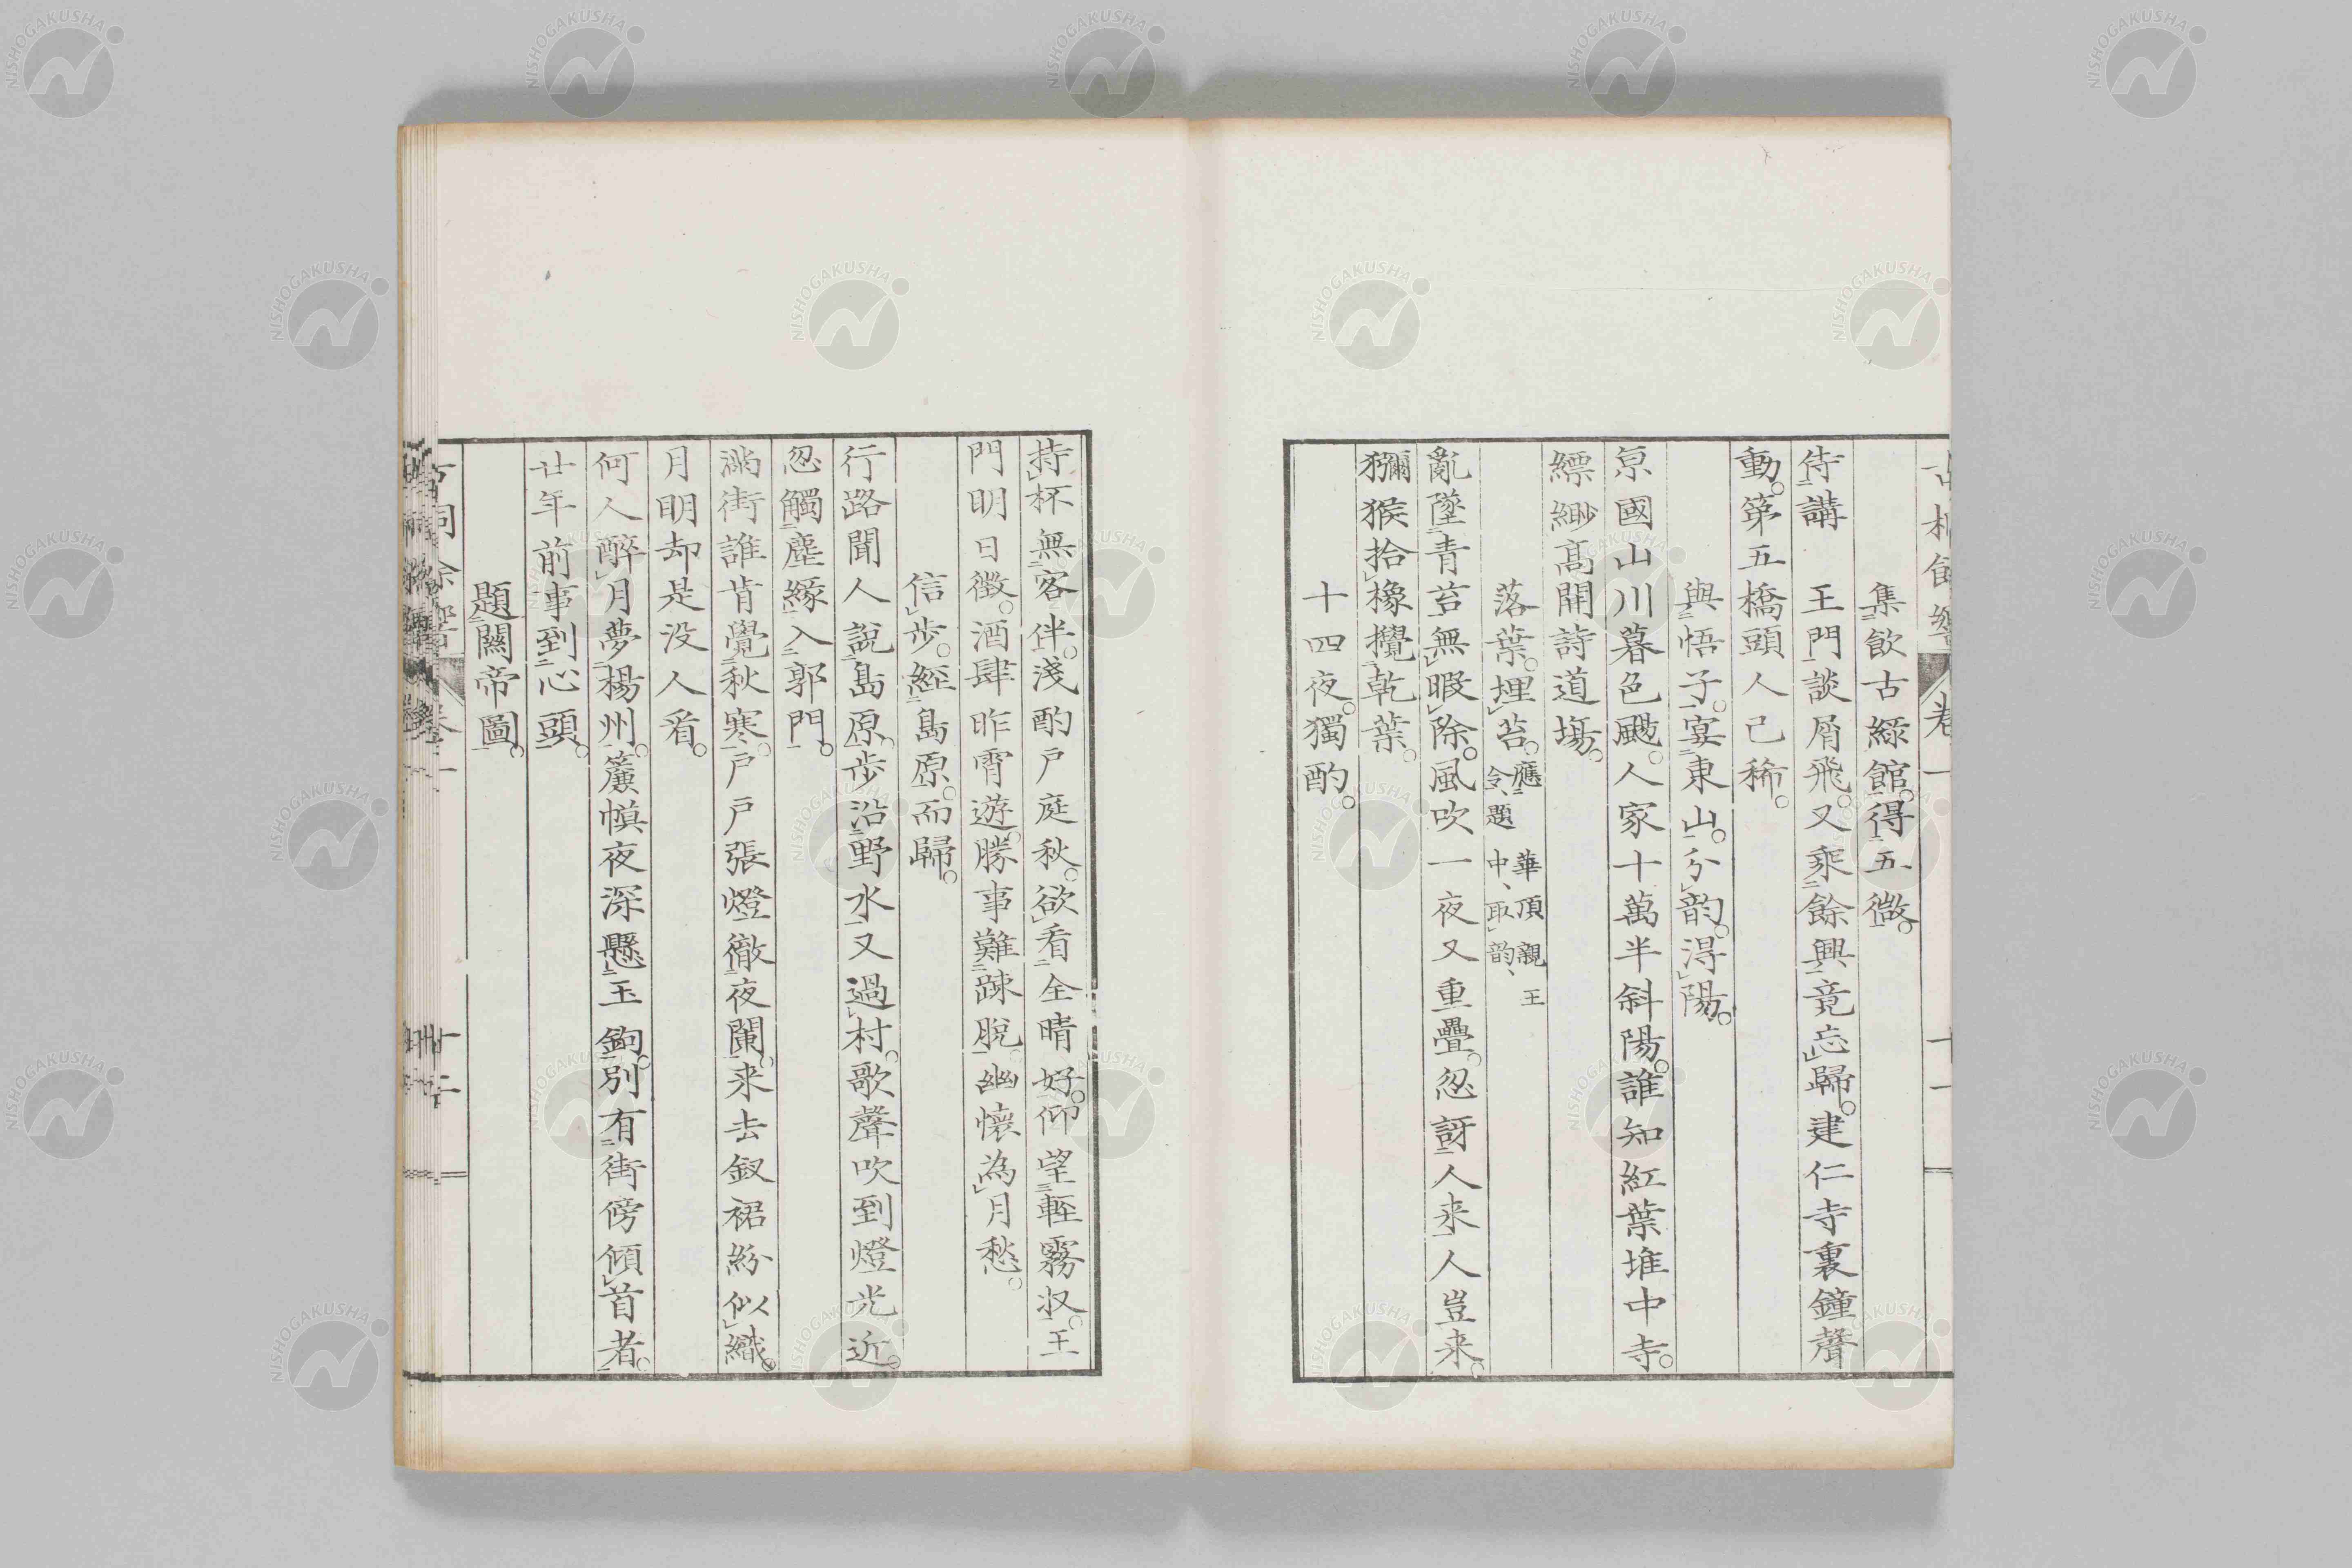 集飲古綠館。得五微。
侍講王門談屑飛。又乘餘興竟忘歸。建仁寺裏鐘聲
動。第五橋頭人已稀。
與悟子。宴東山。分韵。得陽。
京國山川暮色颺。人家十萬半斜陽。誰知紅葉堆中寺。
縹緲高開詩道場。
落葉。埋苔。應華頂親王
令、題中、取韵、
亂墜青苔無暇除。風吹一夜又重疊。忽訝人来人豈来。
獼猴拾橡攪乾葉。
十四夜。獨酌。
持杯無客伴。淺酌戸庭秋。欲看全晴好。仰望輕霧収。王
門明日徵。酒肆昨霄遊。勝事難疎脫。幽懷為月愁。
信步。經島原。而歸。
行路聞人說島原。步沿野水又過村。歌聲吹到燈光近。
忽觸塵緣入郭門。
滿街誰肯覺秋寒。戸戸張燈徹夜闌。来去釵裙紛似織。
月明却是没人看。
何人醉月夢楊州。簾幀夜深懸玉鉤。別有街傍傾首者。
廿年前事到心頭。
題關帝圖。
卷一